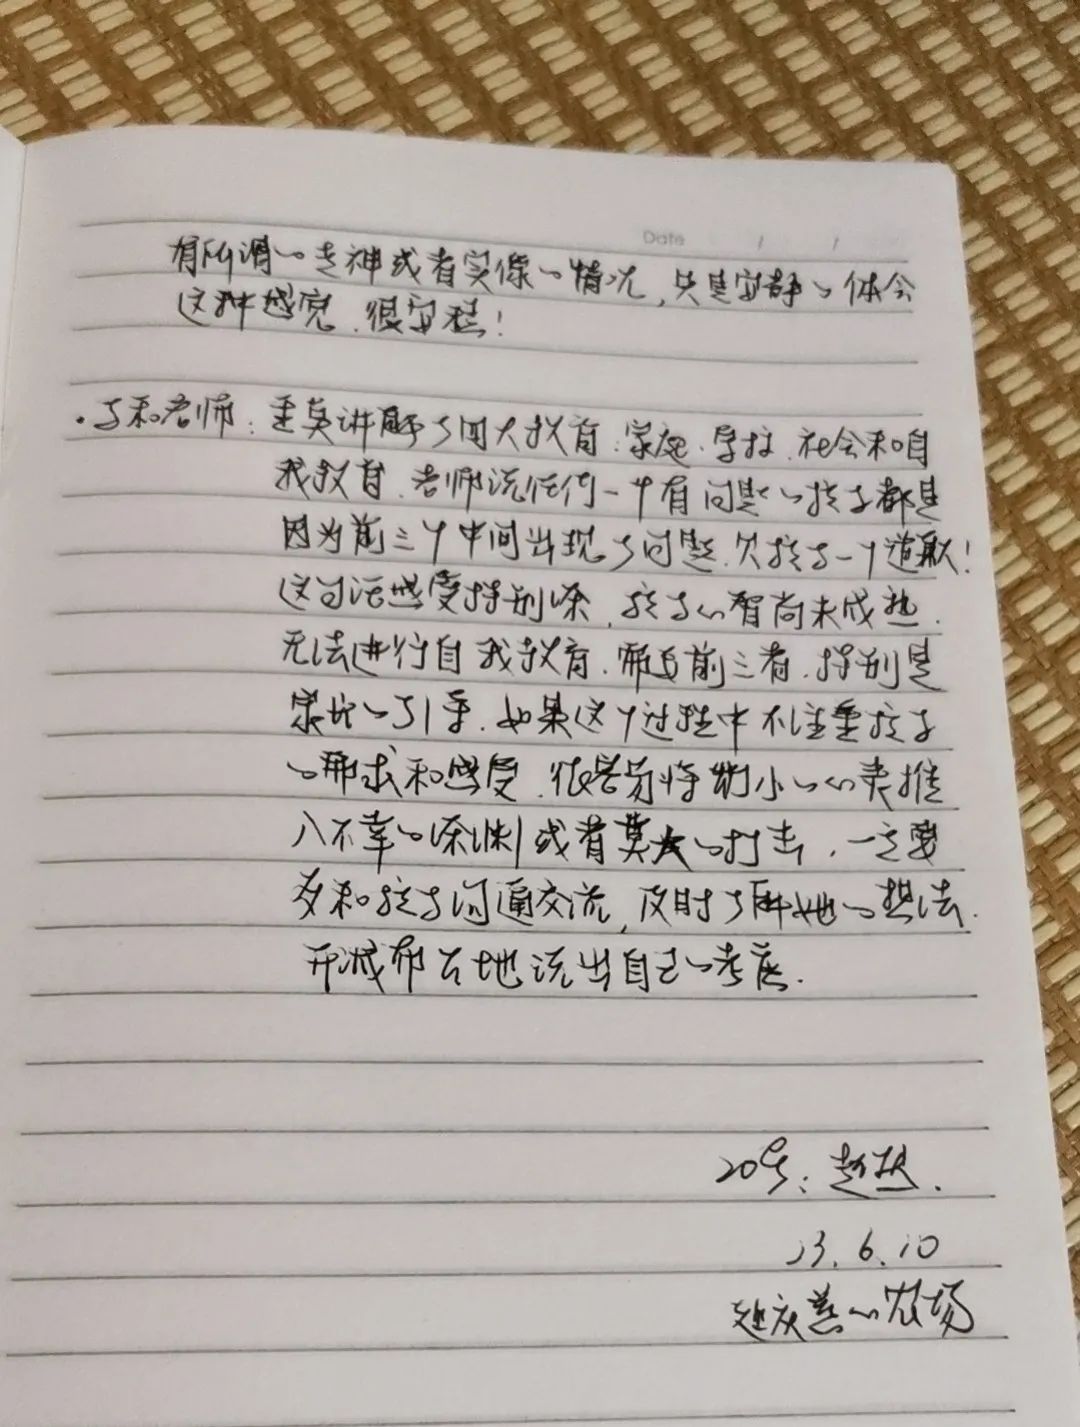 Date / /
有所谓的走神或者实像的情况,只是安静的体会
这种感觉,很安稳!
·子和老师:重英讲解了四大教育:家庭、学校、社会和自
我教育,老师说任何一个有问题的孩子都是
因为前三个中间出现了问题,欠孩子一个道歉!
这句话感受特别深,孩子心智尚未成熟,
无法进行自我教育,而与前三者,特别是
家长的引导,如果这个过程中不注重孩子
的需求和感受,很容易将幼小的心灵推
入不幸的深渊或者莫大的打击,一定要
多和孩子沟通交流,及时了解她的想法,
开诚布公地说出自己的考虑.
20号:赵
23.6.10
延庆慧心农场